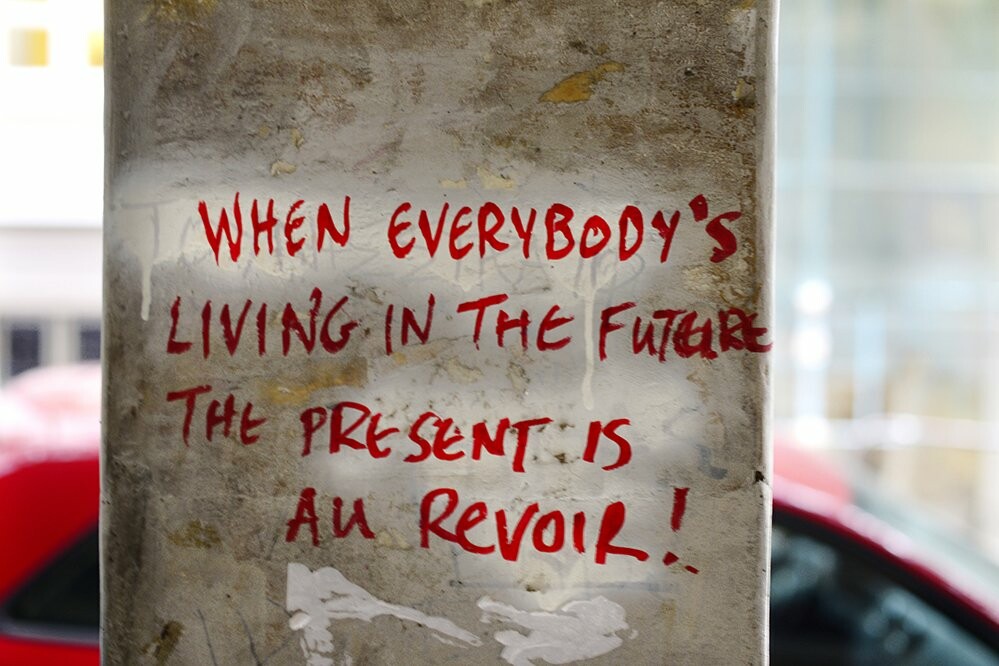 WHEN EVERYBODY'S
LIVING IN THE FUTURE
THE PRESENT IS
AU REVOIR!